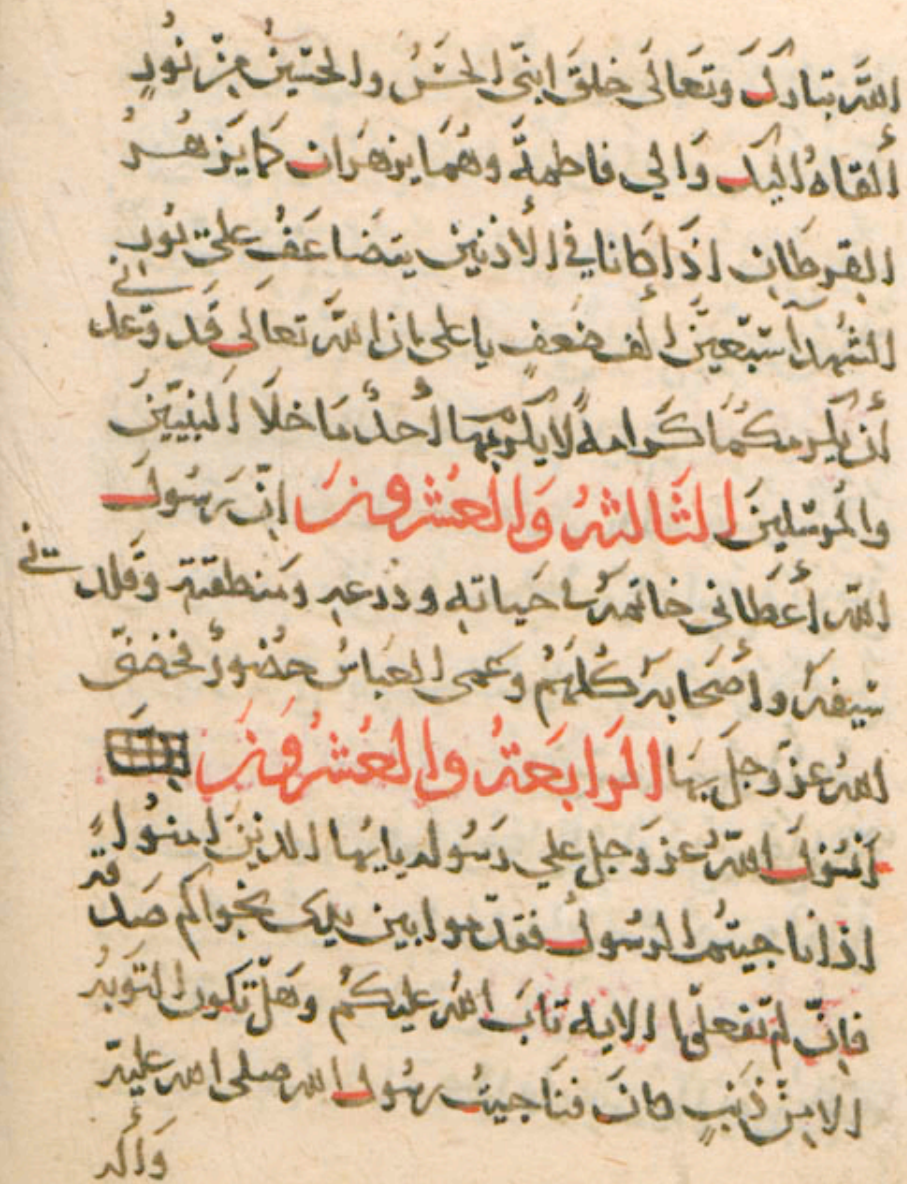 الله تبارك وتعالى خلق ابنى الحسن والحسين من نور
ألقاه اليك والي فاطمة وهما يزهران كما يزهر
القرطان اذا كانا في الأذنين يتضاعف على نور
الشهدآ سبعين الف ضعف يا على ان الله تعالى قد وعدنى
أن يكرمكما كرامة لا يكرم بها أحد ما خلا النبيين
والمرسلين الثالثه والعشرون ان رسول
الله أعطانى خاتمه فى حياته ودرعه ومنطقته وقلدنى
سيفه وأصحابه كلهم وعمى العباس حضور فخصنى
الله عز وجل بها الرابعة والعشرون
انزل الله عز وجل علي رسوله يايها الذين امنوا
اذا ناجيتم الرسول فقدموا بين يدى نجواكم صدقة
فان لم تفعلوا الايه تاب الله عليكم وهل تكون التوبه
الا من ذنب كان فناجيت رسول الله صلى الله عليه
وأله